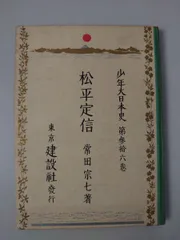 少年大日本史 第参拾六巻
松平定信
常田宗七著
東京 建設社 發行